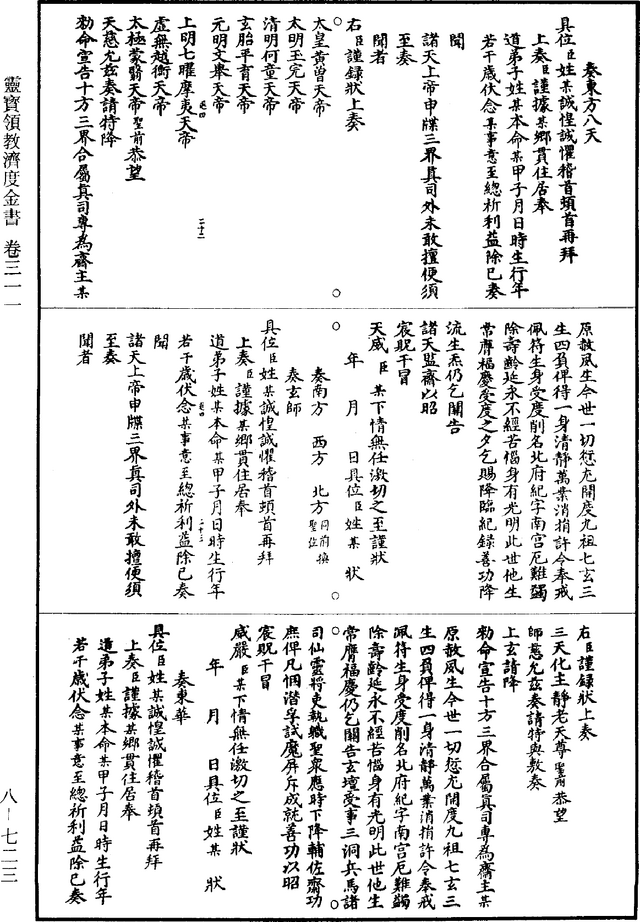 奏東方八天
具位臣姓某誠惶誠懼稽首頓首再拜
上奏臣謹據某鄉貫住居奉
道弟子姓某本命某甲子月日時生行年
若干歲伏念某事意至總祈利益除已奏
聞
諸天上帝申牒三界真司外未敢擅便須
至奏
聞者
右臣謹録狀上奏
太皇黃曽天帝
太明玉完天帝
清明何童天帝
玄胎平育天帝
元明文舉天帝
上明七曜摩夷天帝
虛無越衡天帝
太極蒙翳天帝聖前恭望
天慈允兹奏請特降
勑命宣告十方三界合屬真司專為齋主某
原赦夙生今世一切愆尤開度九祖七玄三
生四負俾得一身清靜萬業消捐許令奉戒
佩符生身受度削名北府紀字南宮厄難蠲
除壽齡延永不經苦惱身有光明此世他生
常膺福慶受度之夕乞賜降臨紀録善功降
流生炁仍乞關告
諸天監齋以昭
宸貺干冒
天威臣某下情無任激切之至謹狀
年 月 日具位臣姓某 狀
奏南方 西方 北方同前換聖位
奏玄師
具位臣姓某誠惶誠懼稽首頓首再拜
上奏臣謹據某鄉貫住居奉
道弟子姓某本命某甲子月日時生行年
若干歲伏念某事意至總祈利益除已奏
聞
諸天上帝申牒三界真司外未敢擅便須
至奏
聞者
右臣謹録狀上奏
三天化主靜老天尊聖前恭望
師慈允兹奏請特與敷奏
上玄請降
勑命宣告十方三界合屬真司專為齋主某
原赦夙生今世一切愆尤開度九祖七玄三
生四負俾得一身清靜萬業消捐許令奉戒
佩符生身受度削名北府紀字南宮厄難蠲
除壽齡延永不經苦惱身有光明此世他生
常膺福慶仍乞關告玄壇受事三洞兵馬諸
司仙靈將吏執職聖衆應時下降輔佐齋功
庶俾凡悃潛孚試魔屏斥成就善功以昭
宸貺干冒
威嚴臣某下情無任激切之至謹狀
年 月 日具位臣姓某 狀
奏東華
具位臣姓某誠惶誠懼稽首頓首再拜
上奏臣謹據某鄉貫住居奉
道弟子姓某本命某甲子月日時生行年
若干歲伏念某事意至總祈利益除已奏
靈寶領教濟度金書 卷三一一
八－七二三